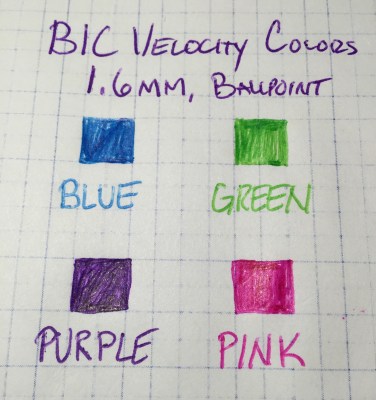 BIC VELOCITY COLORS
1.6MM, BALLPOINT
BLUE GREEN
PURPLE PINK